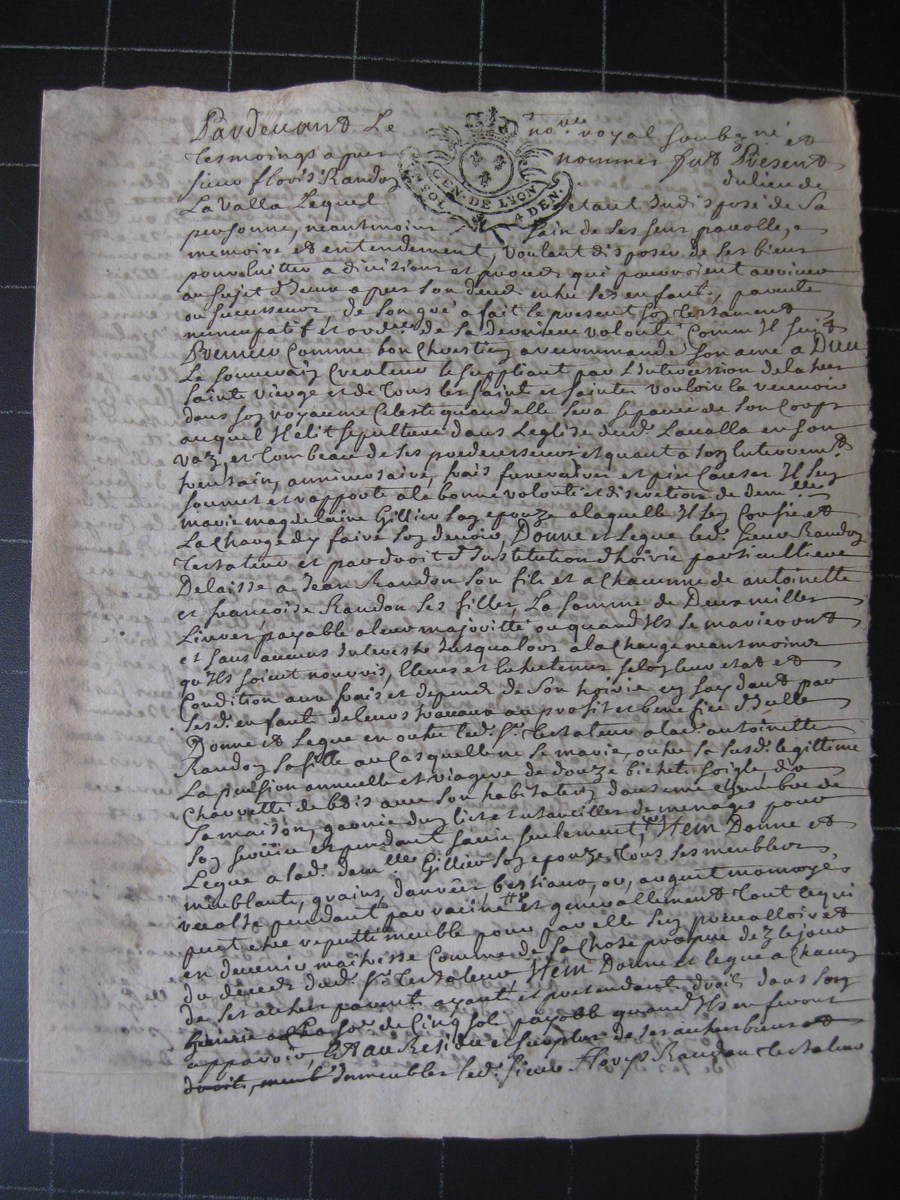 Pardevant Le no.re royal soubzné et
tesmoings apres nommes fut Présent
sieur floris Randon du lieu de
La Valla Lequel étant Indisposé de sa
GEN. DE LYON
SOL 4 DEN.
personne, neantmoins sain de ses sens parolle,
memoire et entendement, Voulant disposer de ses biens
pour éuitter a divizions et procés qui pourroient arriver
au sujet d'Iceux apres son deced entre ses enfants, parents
ou successeurs de Son gré a fait le present son testament
nuncupatif et ordre de sa derniere volonté Comme Il suit
Premier Comme bon Chrestien a recommandé son ame a Dieu
Le souverain Createur le suppliant par L'Intercession de la tres
sainte vierge et de tous les saints et saintes vouloir la recevoir
dans son royaume Celeste quand elle sera separée de son Corps
auquel Il élit sepulture dans L'eglise dud. Lavalla en son
vaz, et tombeau de ses predecesseurs et quant a son Enterrement
trentain, anniversaire, frais funeraires et pies Causes Il s'en
soumet et rapporte a la bonne volonté et discretion de dem.elle
marie magdelaine Gillier son epouze a laquelle Il s'en Confie et
La Charge d'en faire son devoir, Donne et Legue led. sieur Randon
testateur et par droit d'Institution d'hoirie particulliere
Delaisse a Jean Randon son fils et a chacunne de antoinette
et francoise Randon ses filles La somme de Deux milles
Livres, payable a leur majoritté ou quand Ils se marieront
et sans aucuns Interests Jusqualors a la charge neantmoins
qu'Ils soient nourris, Eleves et Entretenus selon leur etat et
Condition aux frais et depends de son hoirie en fay dant par
sesd. enfants de leurs travaux au profit et benefice d'Icelle
Donne et Legue en outre led. s.r testateur a lad. antoinette
Randon sa fille au Cas quelle ne se marie, outre sa susd. legittime
La pension annuelle et viagere de douze bichets soigle, dix
Charrettes de bois avec son habitation dans une chambre de
sa maison, garnie d'un lict et ustancilles de menages pour
son service et pendant sa vie seulement, Item Donne et
Legue a lad. dam.elle Gillier son epouze tous ses meubles
meublants, grains, danrées bestiaux, or, argent monoyé,
recolte pendants par racines et generallement tout ce qui
peut etre reputté meuble pour par elle s'en prevalloir et
en devenir maitresse Comme de sa Chose propre dez le jour
du deceds dud. s.r testateur Item Donne et legue a chacun
de ses autres parents ayants et pretendants droits dans son
hoirie La som.e de Cinq sols payable quand Ils en feront
apparoir Et au Residu et surplus de ses autres biens et
droits, Inmeubles led. sieur floris Randon testateur